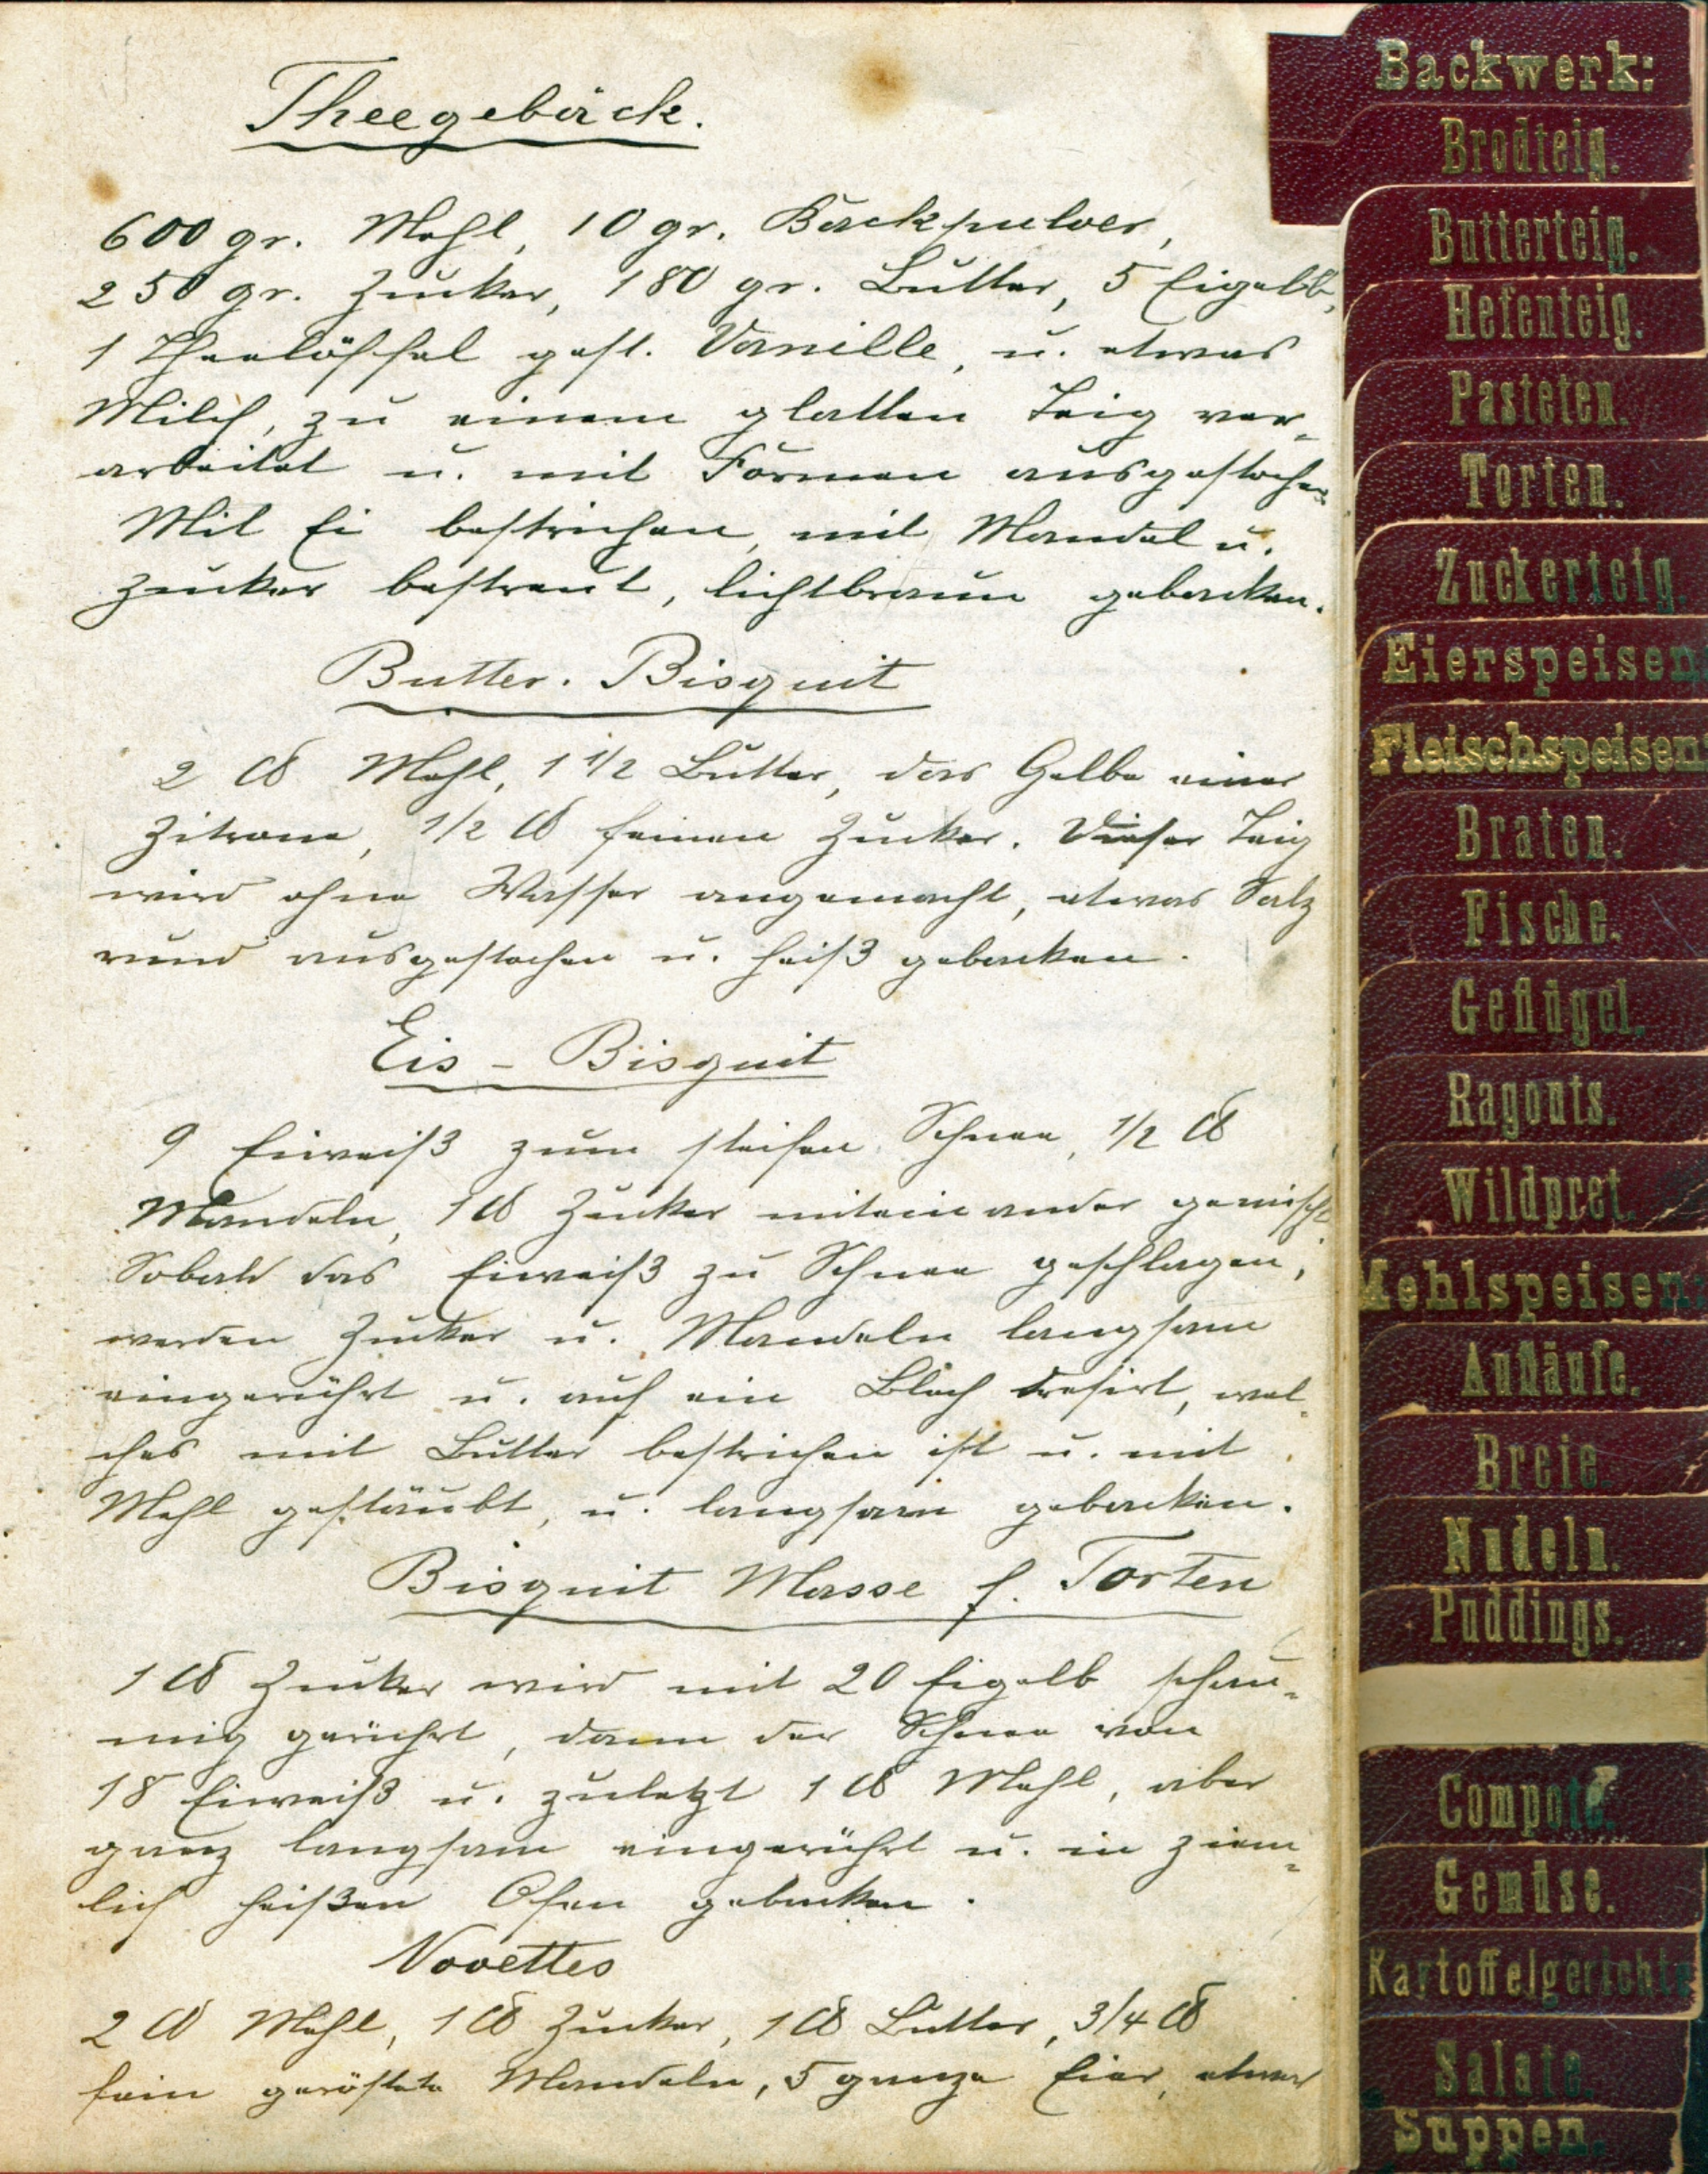 Theegebäck.
600 gr. Mehl, 10 gr. Backpulver,
250 gr. Zucker, 180 gr. Butter, 5 Eigelb,
1 Theelöffel gest. Vanille, u. etwas
Milch, zu einem glatten Teig ver-
arbeitet u. mit Formen ausgestochen
Mit Ei bestrichen, mit Mandel u.
Zucker bestreut, lichtbraun gebacken.
Butter. Bisquit
2 ℔ Mehl, 1 1/2 Butter, das Gelbe einer
Zitrone, 1/2 ℔ feinen Zucker. Dieser Teig
wird ohne Wasser angemacht, etwas Salz
rund ausgestochen u. heiß gebacken.
Eis - Bisquit
9 Eiweiß zum steifen Schnee, 1/2 ℔
Mandeln, 1 ℔ Zucker miteinander gemischt
Sobald das Eiweiß zu Schnee geschlagen,
werden Zucker u. Mandeln langsam
eingerührt u. auf ein Blech dresirt, wel-
ches mit Butter bestrichen ist u. mit
Mehl gestäubt, u. langsam gebacken.
Bisquit Masse f. Torten
1 ℔ Zucker wird mit 20 Eigelb schau-
mig gerührt, dann der Schnee von
18 Eiweiß u. zuletzt 1 ℔ Mehl, aber
ganz langsam eingerührt u. in ziem-
lich heißen Ofen gebacken.
Novettes
2 ℔ Mehl, 1 ℔ Zucker, 1 ℔ Butter, 3/4 ℔
fein geröstete Mandeln, 5 ganze Eier, etwas
Backwerk:
Brodteig.
Butterteig.
Hefenteig.
Pasteten.
Torten.
Zuckerteig.
Eierspeisen:
Fleischspeisen
Braten.
Fische.
Geflügel.
Ragouts.
Wildpret.
Mehlspeisen:
Aufläufe.
Breie.
Nudeln.
Puddings.
Compote.
Gemüse.
Kartoffelgerichte
Salate.
Suppen.